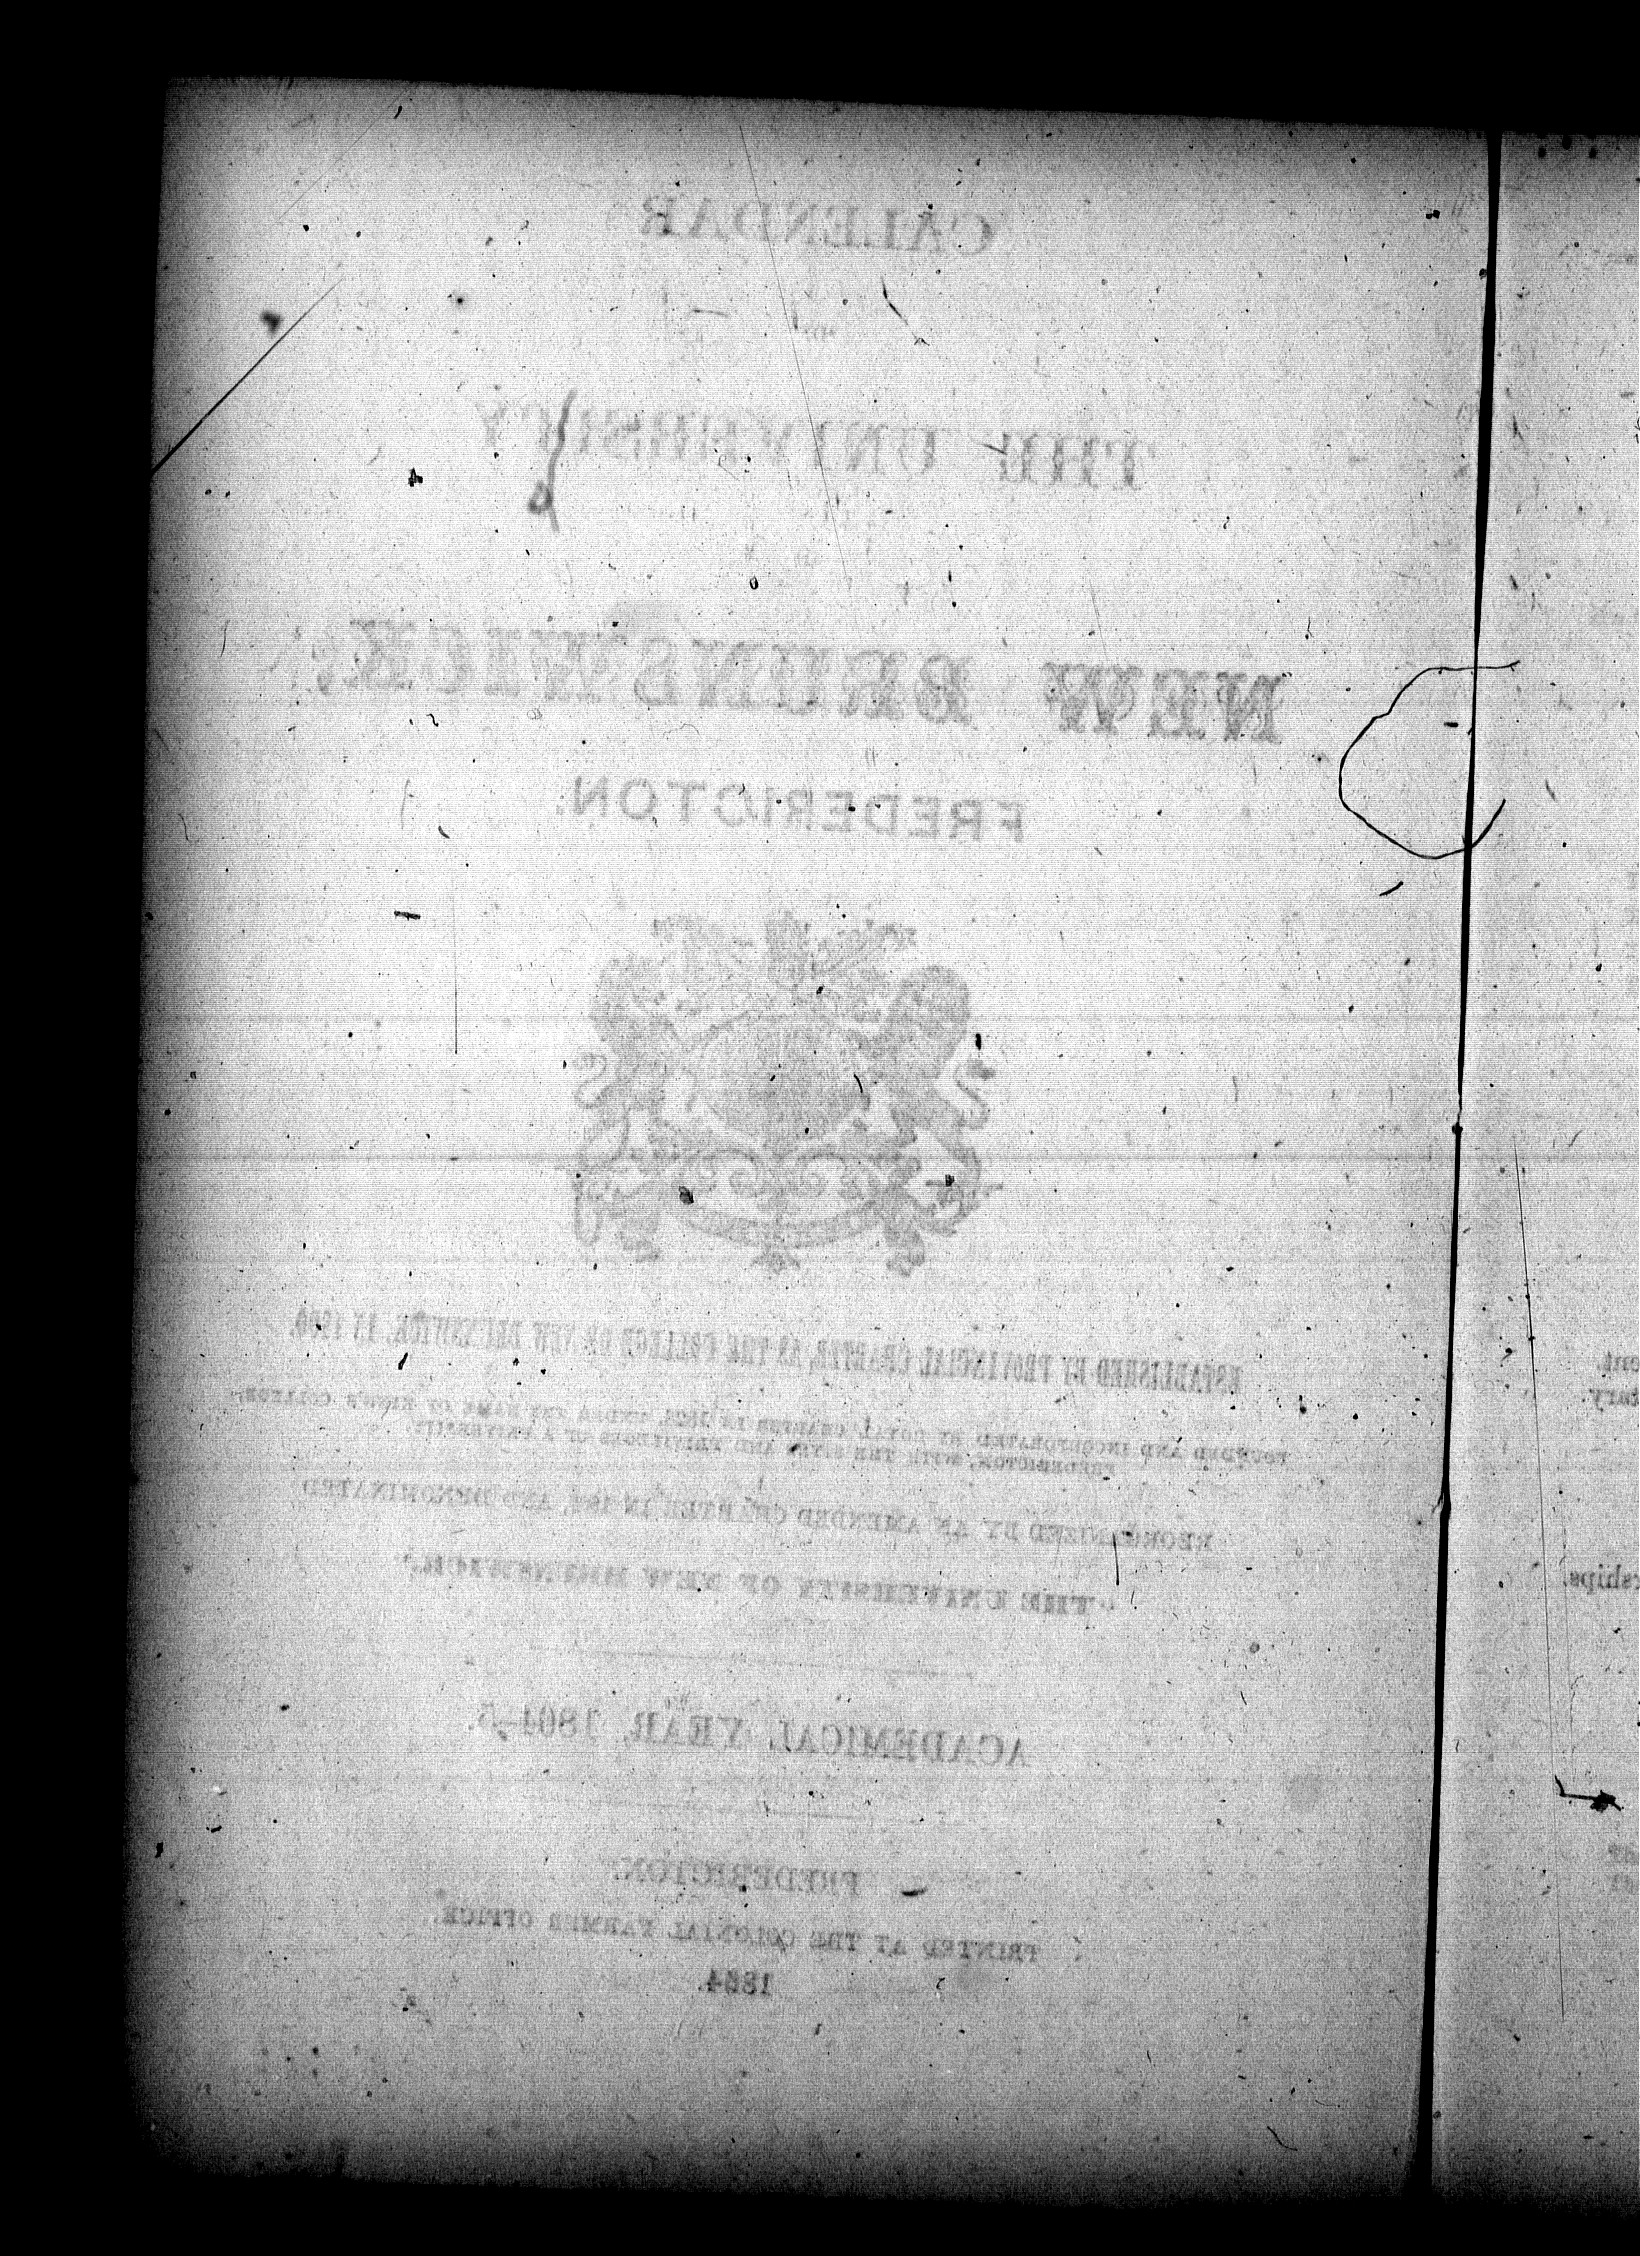 CALENDAR
OF
THE UNIVERSITY
OF
NEW BRUNSWICK,
FREDERICTON.
ESTABLISHED BY PROVINCIAL CHARTER, AS THE COLLEGE OF NEW BRUNSWICK, IN 1800,
FOUNDED AND INCORPORATED BY ROYAL CHARTER IN 1828, UNDER THE NAME OF KING'S COLLEGE,
FREDERICTON, WITH THE STYLE AND PRIVILEGES OF A UNIVERSITY,
REORGANIZED BY AN AMENDED CHARTER IN AND DENOMINATED
"THE UNIVERSITY OF NEW BRUNSWICK."
ACADEMICAL YEAR, 1864-5.
FREDERICTON:
PRINTED AT THE COLONIAL FARMER OFFICE.
1864.